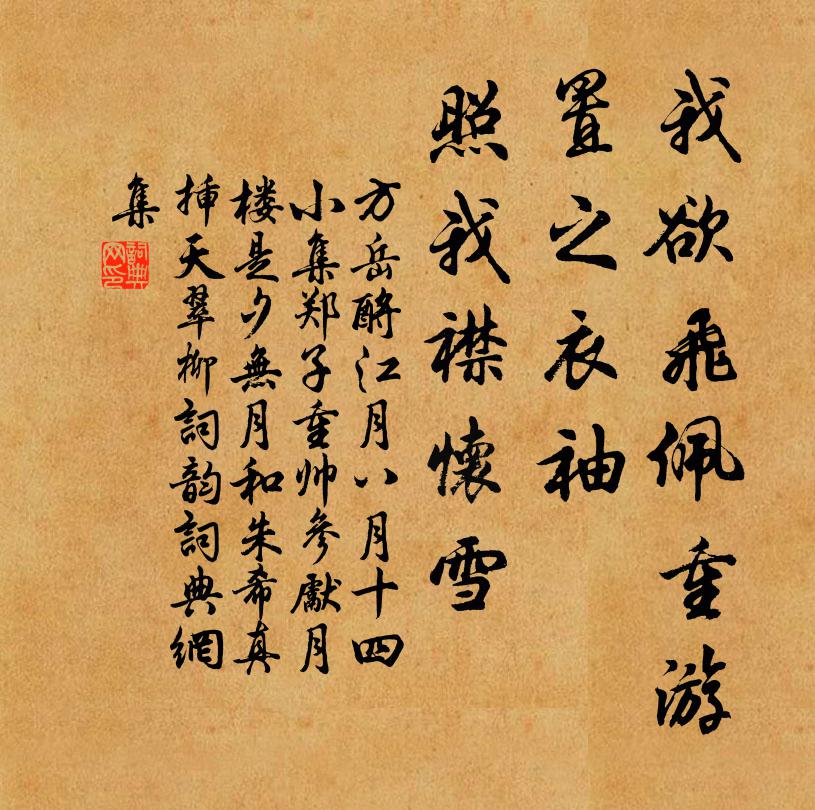 我欲飛佩重游
置之衣袖
照我襟懷雪
方岳酹江月八月十四
小集郑子重帅參獻月
楼是夕無月和朱希真
插天翠柳詞韵詞典網
集
詞典
网印